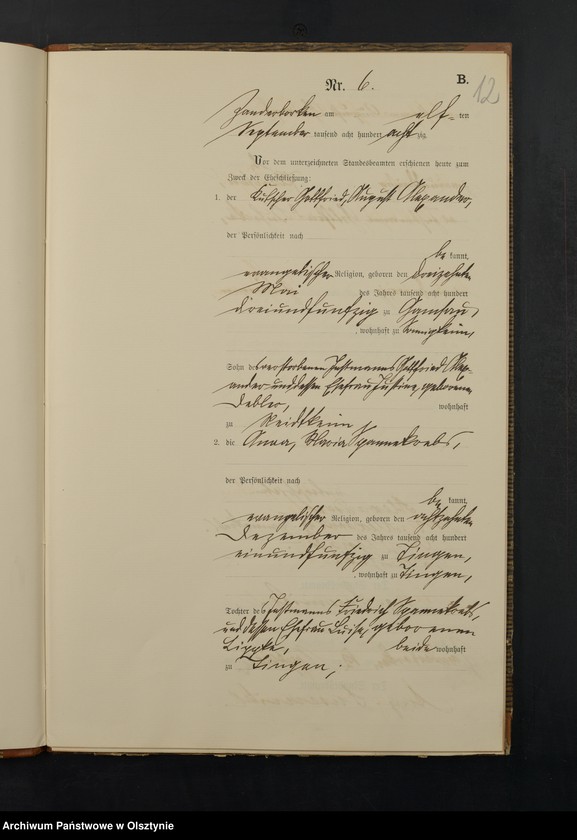 Nr. 6.
B.
12
Zanderborken am elf=ten
September tausend acht hundert achtzig.
Vor dem unterzeichneten Standesbeamten erschienen heute zum
Zweck der Eheschließung:
1. der Kutscher Gottfried, August Alexander,
der Persönlichkeit nach
be kannt,
evangelischer Religion, geboren den dreizehnten
Mai des Jahres tausend acht hundert
dreiundfunfzig zu
, wohnhaft zu
Sohn des verstorbenen Instmanns Gottfried Alex-
ander und dessen Ehefrau Justine, geborene
wohnhaft
zu
2. die Anna, Maria Spannekrebs,
der Persönlichkeit nach
be kannt,
evangelischer Religion, geboren den achtzehnten
Dezember des Jahres tausend acht hundert
einundfunfzig zu Tingen,
, wohnhaft zu Tingen,
Tochter des Instmanns Friedrich Spannekrebs,
und dessen Ehefrau Luise, geborenen
Lippke, beide wohnhaft
zu Tingen;
Archiwum Państwowe w Olsztynie